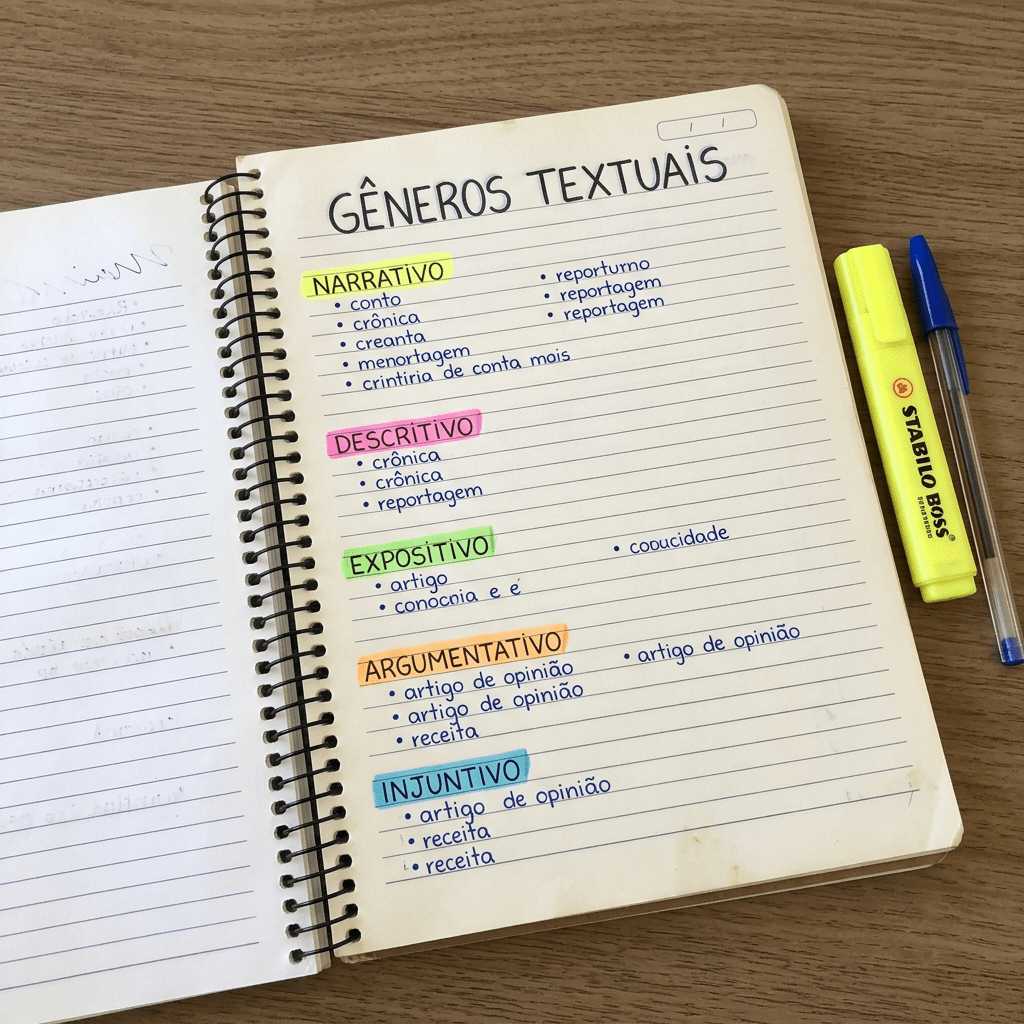 GÊNEROS TEXTUAIS
NARRATIVO
• conto
• crônica
• creanta
• menortagem
• crintiria de conta mais
• reporturno
• reportagem
• reportagem
DESCRITIVO
• crônica
• crônica
• reportagem
EXPOSITIVO
• artigo
• conocnia e é
• cooucidade
ARGUMENTATIVO
• artigo de opinião
• artigo de opinião
• receita
• artigo de opinião
INJUNTIVO
• artigo de opinião
• receita
• receita
STABILO BOSS